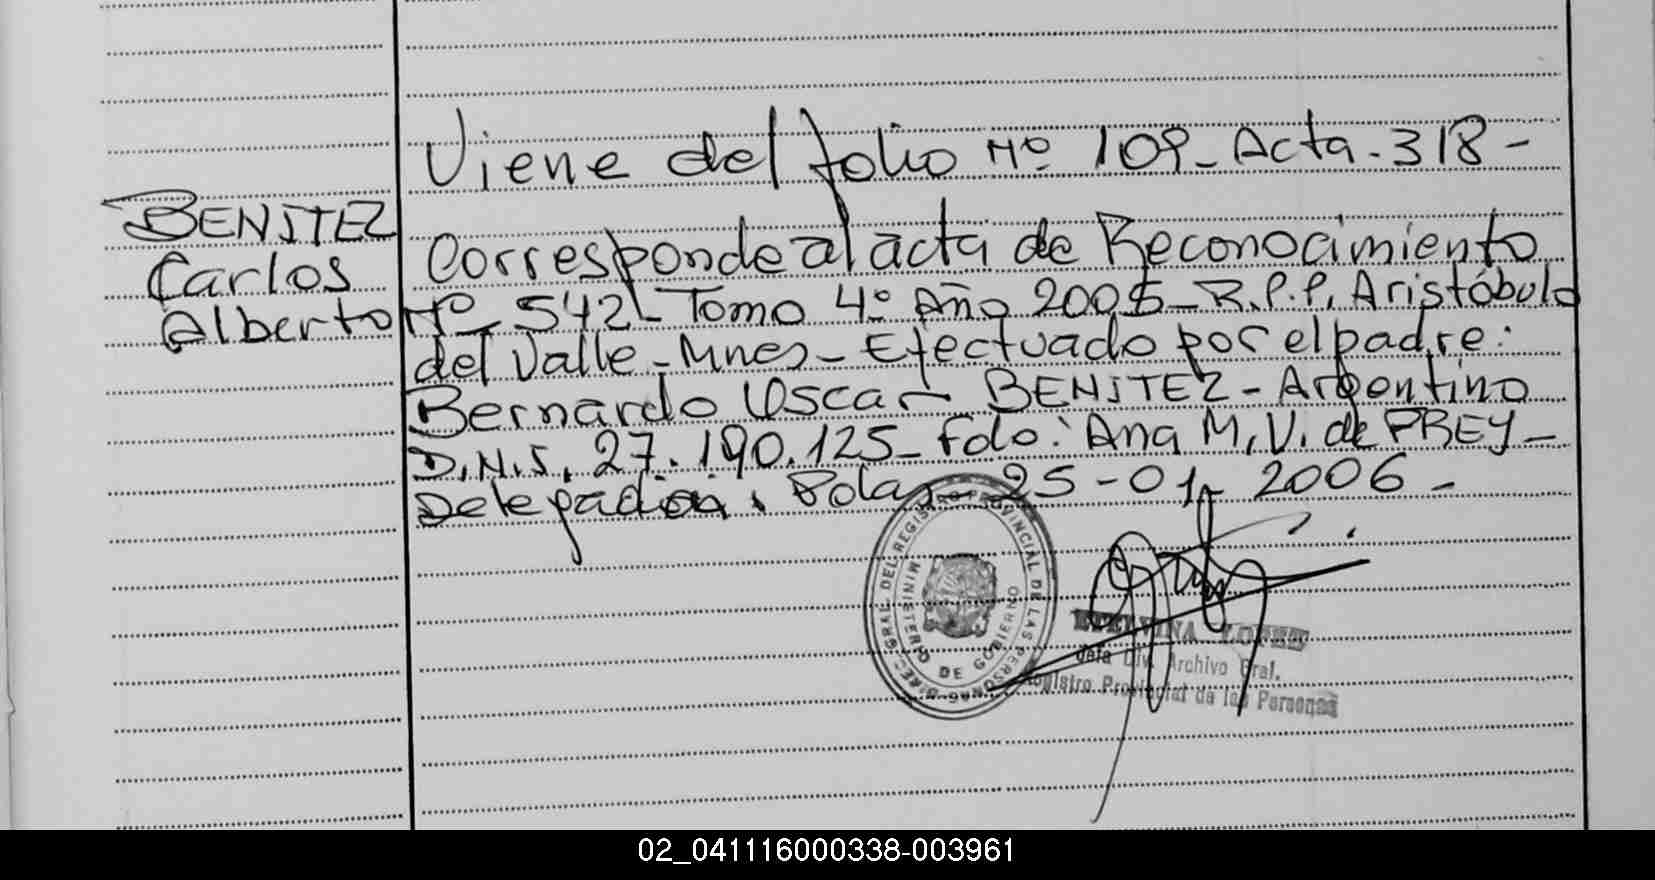 Viene del folio Nº 109 - Acta - 318 -
BENITEZ
Carlos
Alberto
Corresponde al acta de Reconocimiento
Nº 542 - Tomo 4º Año 2005 - R.P.P. Aristóbulo
del Valle - Mnes - Efectuado por el padre:
Bernardo Oscar BENITEZ - Argentino
D.N.I. 27.190.125 - Fdo: Ana M. V. de PREY -
Delegada. Posadas 25-01-2006 -
DIREC. GRAL. DEL REGISTRO PROVINCIAL DE LAS PERSONAS
MINISTERIO DE GOBIERNO
ETELVINA LOPEZ
Jefa Div. Archivo Gral.
Registro Provincial de las Personas
02_041116000338-003961